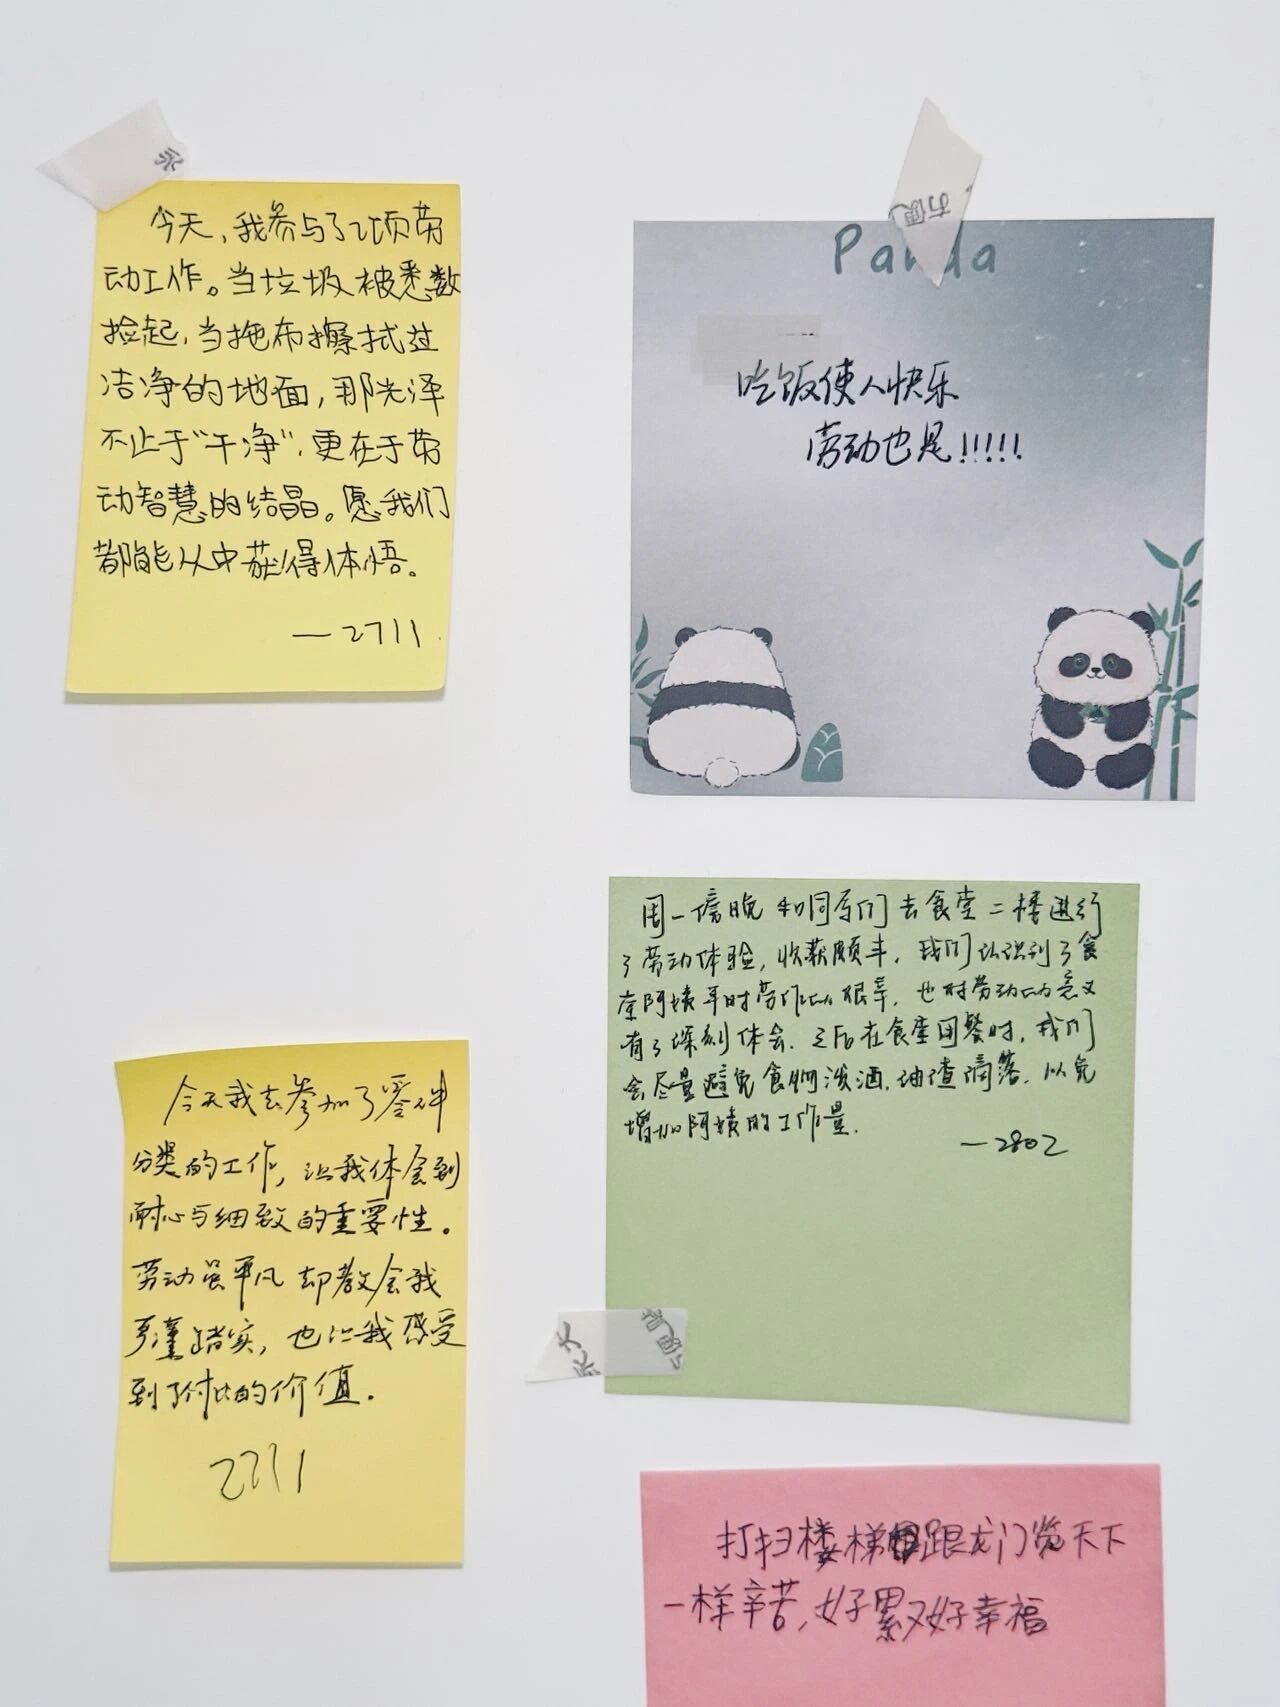 今天,我参与了2项劳
动工作。当垃圾被悉数
捡起,当拖布擦拭过
洁净的地面,那光泽
不止于“干净”,更在于劳
动智慧的结晶。愿我们
都能从中获得体悟。
—2711
Panda
吃饭使人快乐
劳动也是!!!!!
周一傍晚和同学们去食堂二楼进行
了劳动体验,收获颇丰,我们认识到了食
堂阿姨平时劳作的艰辛,也对劳动的意义
有了深刻体会.之后在食堂用餐时,我们
会尽量避免食物泼洒,油渣滴落,以免
增加阿姨的工作量.
—2802
今天我去参加了零件
分类的工作,让我体会到
耐心与细致的重要性。
劳动虽平凡却教会我
严谨踏实,也让我感受
到了付出的价值.
2711
打扫楼梯跟龙门览天下
一样辛苦,好累又好幸福